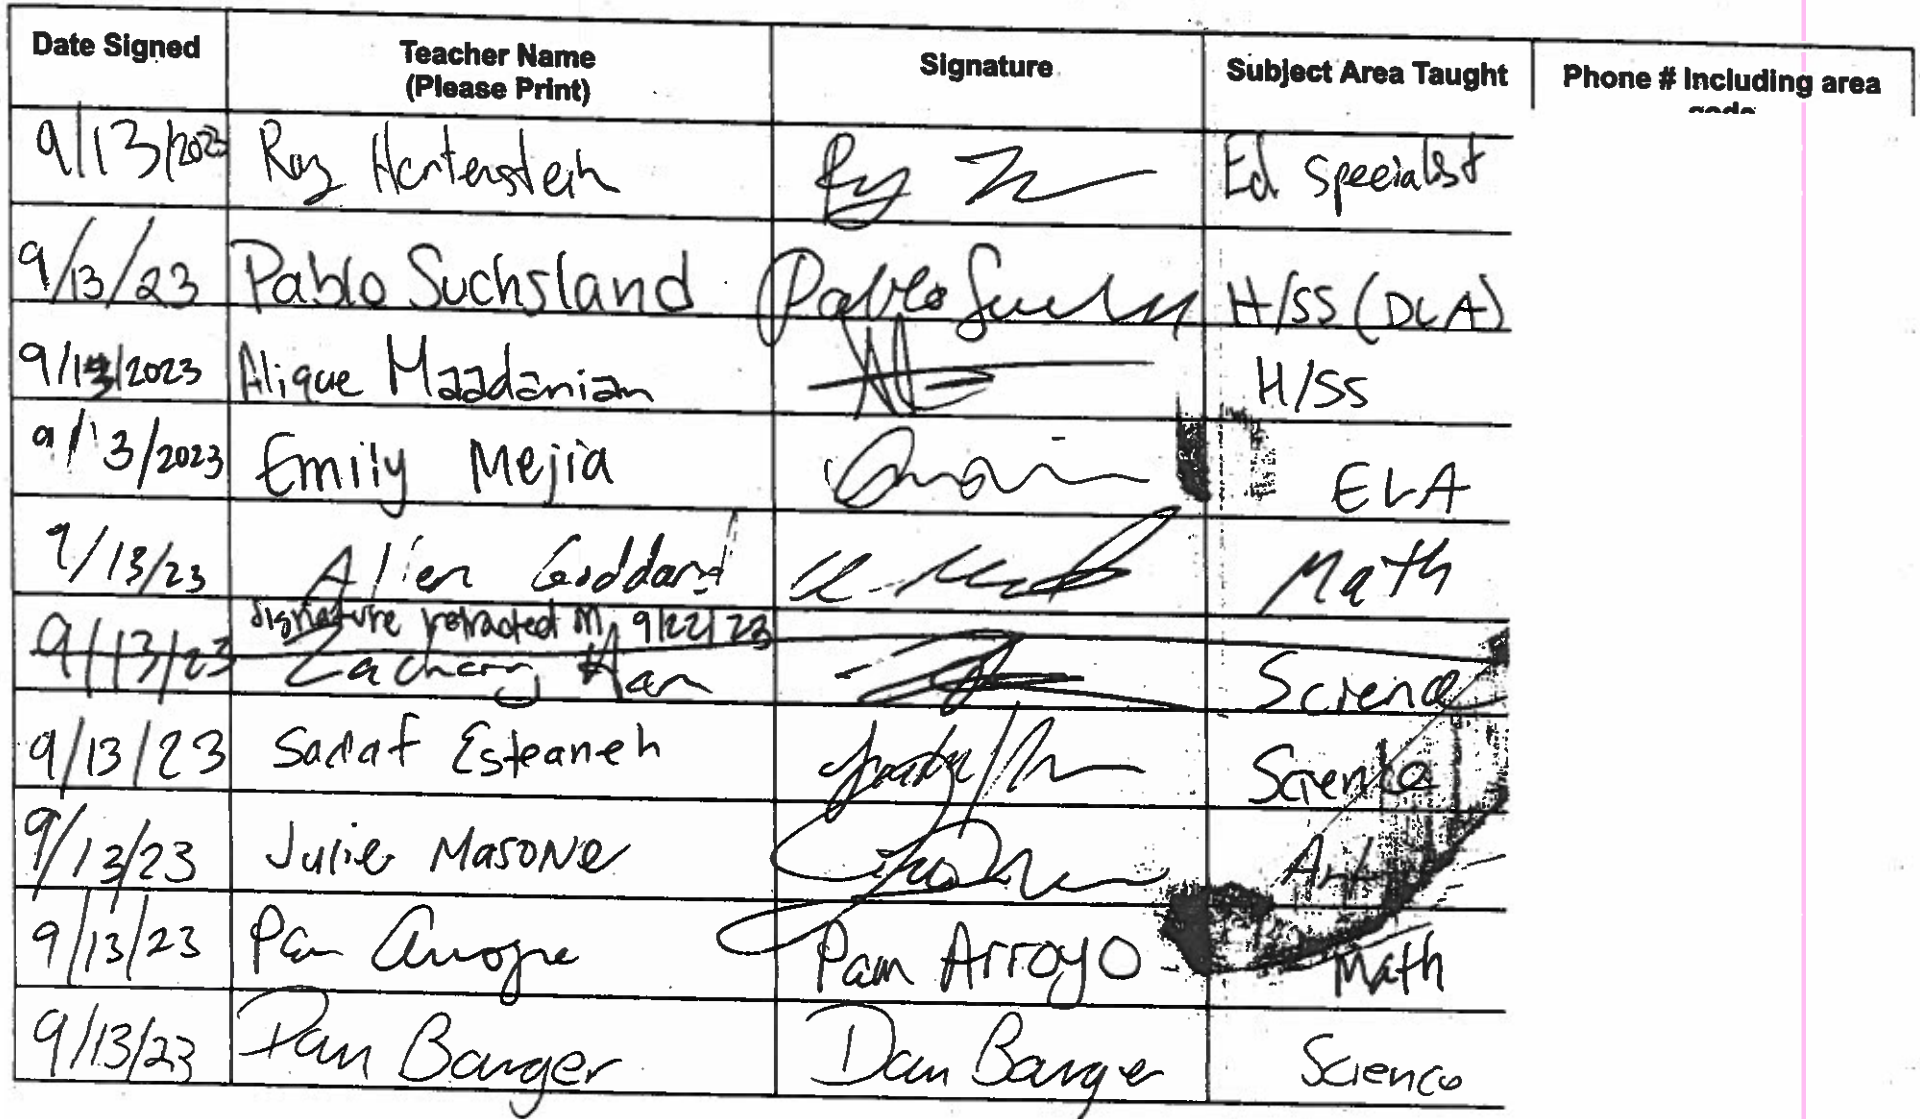 Date Signed Teacher Name (Please Print) Signature Subject Area Taught Phone # Including area code
9/13/2023 Ray Hartenstein Ed Specialist
9/13/23 Pablo Suchsland H/SS (DLA)
9/13/2023 Alique Maadanian H/SS
9/13/2023 Emily Mejia ELA
9/13/23 Allen Goddard Math
signature retracted on 9/22/23
9/13/23 Zachary Han Science
9/13/23 Sadaf Esteaneh Science
9/13/23 Julie Masone Art
9/13/23 Pam Arroyo Pam Arroyo Math
9/13/23 Dan Barger Dan Barger Science